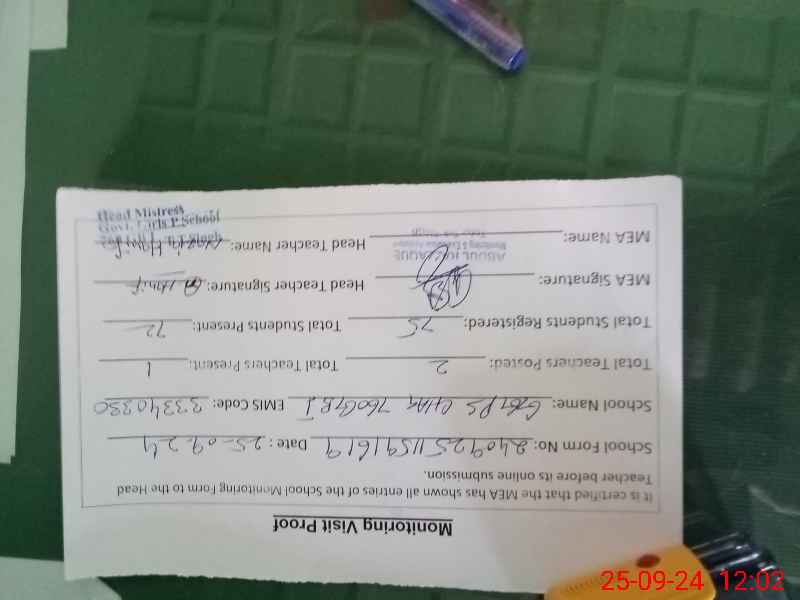 Monitoring Visit Proof
It is certified that the MEA has shown all entries of the School Monitoring Form to the Head
Teacher before its online submission.
School Form No: 240925115916 19 Date: 25-09-24
School Name: GGPS CHAK 760GB I EMIS Code: 33340330
Total Teachers Posted: 2 Total Teachers Present: 1
Total Students Registered: 75 Total Students Present: 72
MEA Signature: Head Teacher Signature: Hanif
MEA Name: Head Teacher Name: Hanif
ABDUL
Monitoring &
Head Mistress
Govt. Girls P/School
25-09-24 12:02